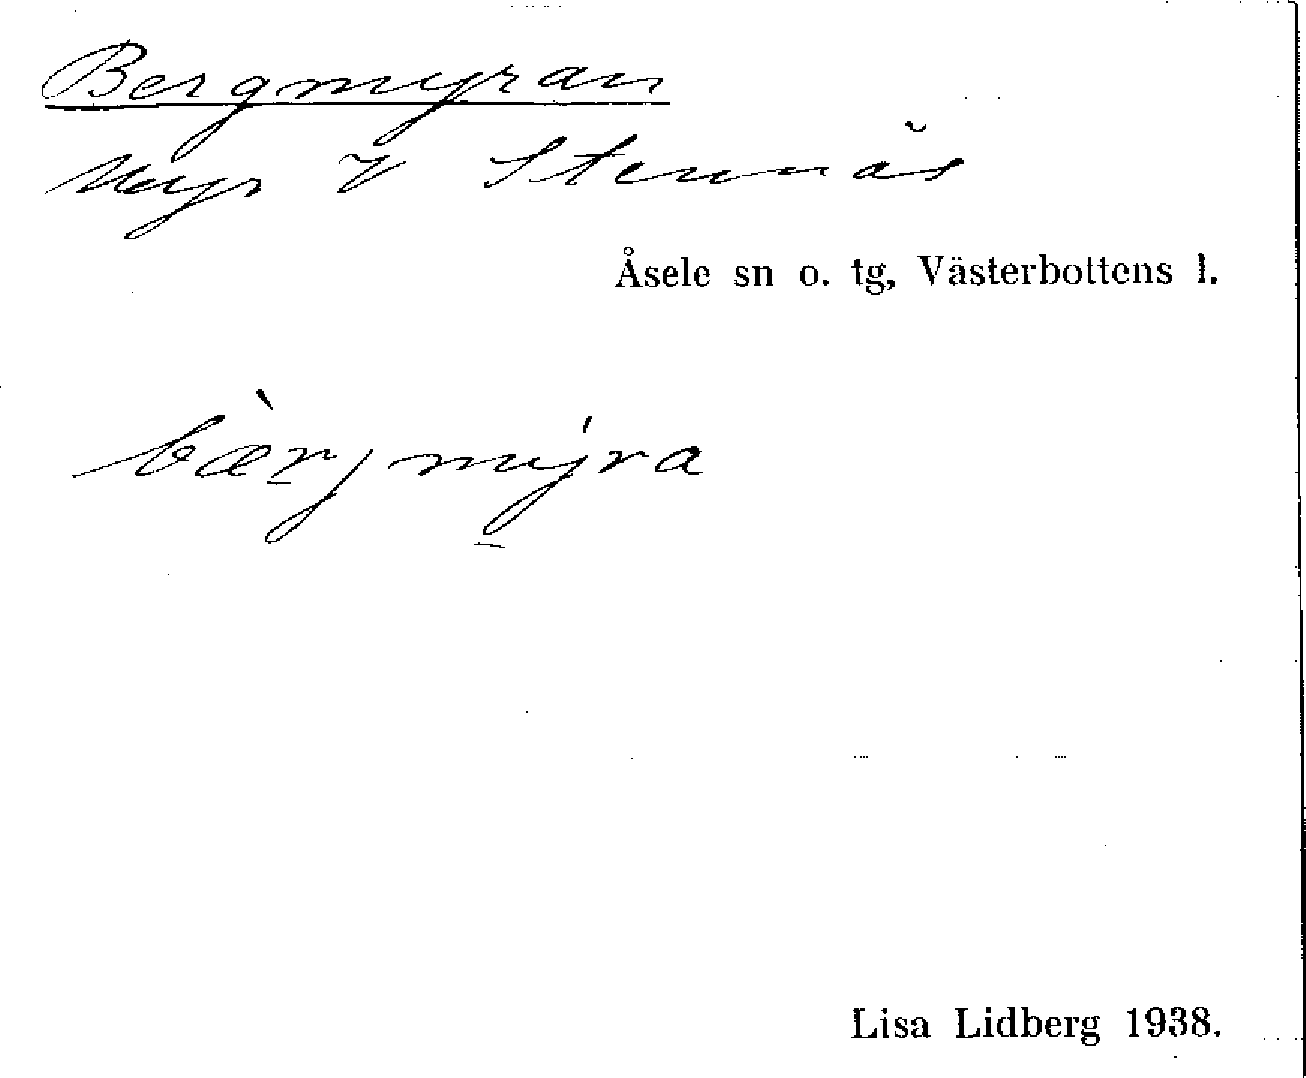 Bergmyran
Myr V Stennäs
Åsele sn o. tg, Västerbottens l.
bæ̀rjmýra
Lisa Lidberg 1938.